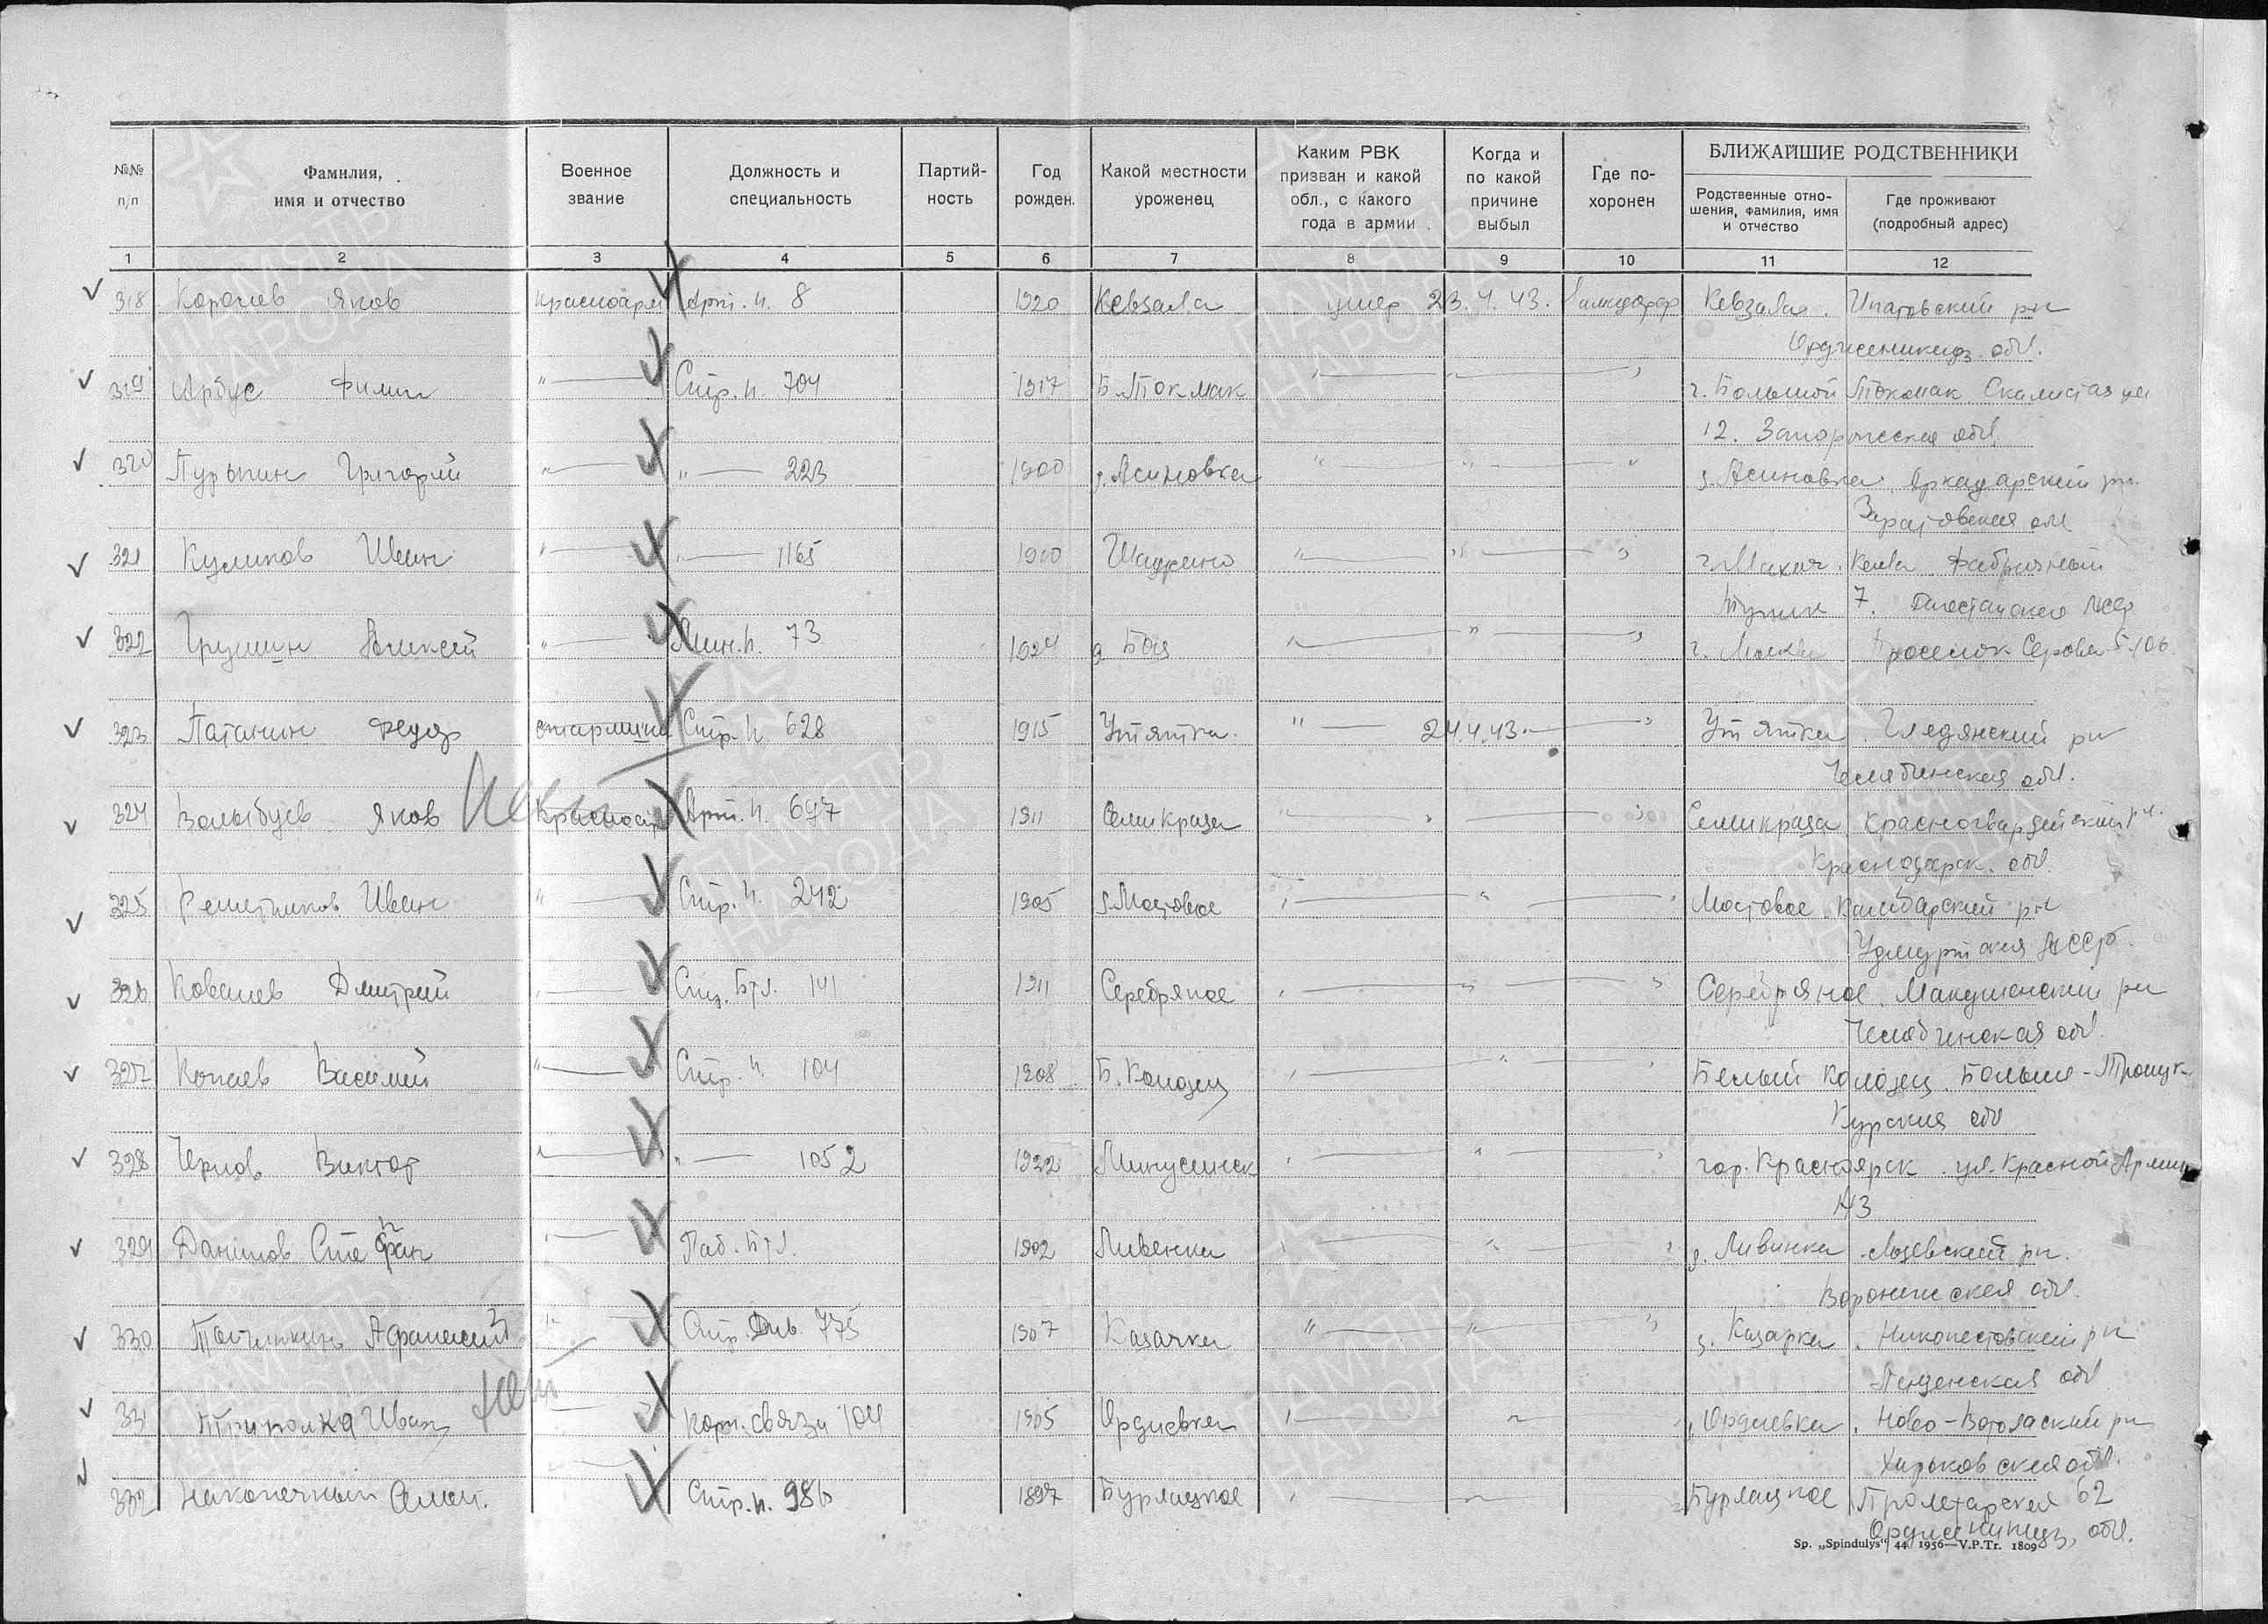 №№ п/п
Фамилия, имя и отчество
Военное звание
Должность и специальность
Партий-ность
Год рожден.
Какой местности уроженец
Каким РВК призван и какой обл., с какого года в армии
Когда и по какой причине выбыл
Где по-хоронен
БЛИЖАЙШИЕ РОДСТВЕННИКИ
Родственные отно-шения, фамилия, имя и отчество
Где проживают (подробный адрес)
1 2 3 4 5 6 7 8 9 10 11 12
318 Яков красноарм Арт. п. 8 1920 Кевзала умер 23.4.43. Кевзала. Ипатовский рн
Орджоникидз. обл.
319 Арбус Филип " Стр. п. 704 1917 Б. Токмак " " " г. Большой Токмак Скалистая ул
12. Запорожская обл.
320 Григорий " " 223 1900 д. Асиновка " " " д. Асиновка. рн.
обл
321 Куликов Иван " " 1165 1910 " " " г. Махач. Кала Фабричный
Тупик 7. Дагестанская АССР
322 Грушин Алексей " п. 73 1924 д " " " г. Москва Проселок Серова 5-106
323 Патанин Федор старшина Стр. п. 628 1915 Утятка. " 24.4.43. " Утятка. Глядянский рн
Челябинская обл.
324 Яков Красноар Арт. п. 697 1911 " " " Красногвардейский рн.
Краснодарск. обл.
325 Решетников Иван " Стр. п. 242 1905 д. Мостовое " " " Мостовое. Камбарский рн
Удмуртская АССР.
326 Ковалев Дмитрий " Бтл. 141 1911 Серебряное " " " Серебряное. Макушенский рн
Челябинская обл.
327 Копаев Василий " Стр. п. 104 1908 Б. Колодец " " " Белый Колодец. Больше-Троицк.
Курская обл
328 Чернов Виктор " " 1052 1922 Минусинск " " " гор. Красноярск. ул. Красной Армии
329 Данилов Стефан " Раб. Бтл. 1902 Ливенка " " " д. Ливинка рн.
Воронежская обл.
330 Афанасий " Стр. Див. 775 1907 Казачка " " " рн
Пензенская обл
нет
331 Триполка Иван связи 104 1905 Ордиевка " " Ордиевка. рн
Харьковская обл.
332 Наконечный Семен. Стр. п. 986 1897 Бурлацкое " " Бурлацкое Пролетарская 62
Орджоникидз, обл.
Sp. „Spindulys" 44 1956—V.P.Tr. 1809